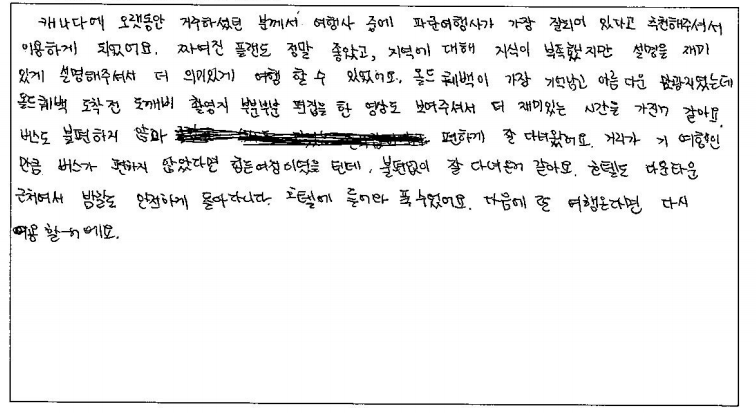 캐나다에 오랫동안 거주하셨던 분께서 여행사 중에 파란여행사가 가장 잘되어 있다고 추천해주셔서
이용하게 되었어요. 짜여진 플랜도 정말 좋았고, 지역에 대해 지식이 부족했지만 설명을 재미
있게 설명해주셔서 더 의미있게 여행 할 수 있었어요. 올드퀘백이 가장 기억남고 아름다운 관광지였는데
올드퀘백 도착 전 도깨비 촬영지 부분부분 편집을 한 영상도 보여주셔서 더 재미있는 시간을 가진거 같아요.
버스도 불편하지 않아 편하게 잘 다녀왔어요. 거리가 긴 여행인
만큼 버스가 편하지 않았다면 힘든여정이였을 텐데, 불편없이 잘 다녀온거 같아요. 호텔도 다운타운
근처여서 밤에도 안전하게 돌아다니다. 호텔에 들어와 푹 쉬었어요. 다음에 또 여행온다면 다시
이용 할 예요.